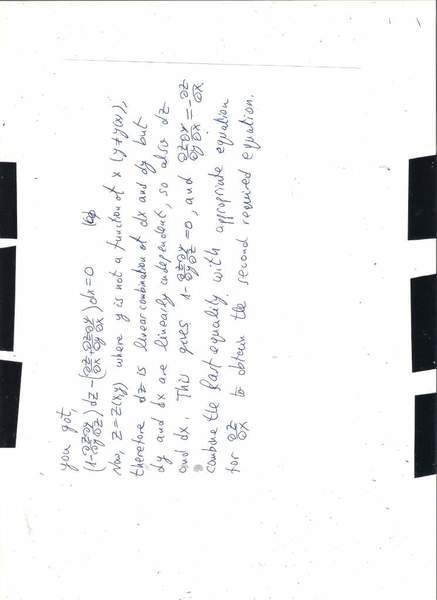 you got,
(1-∂z/∂y ∂y/∂z) dz - (∂z/∂x + ∂z/∂y ∂y/∂x) dx = 0
Now, z = z(x,y) where y is not a function of x (y≠y(x)),
therefore dz is linear combination of dx and dy but
dy and dx are linearly independent, so also dz
and dx. This gives 1-∂z/∂y ∂y/∂z = 0, and ∂z/∂y ∂y/∂x = -∂z/∂x.
combine the last equality with appropriate equation
for ∂z/∂x to obtain the second required equation.